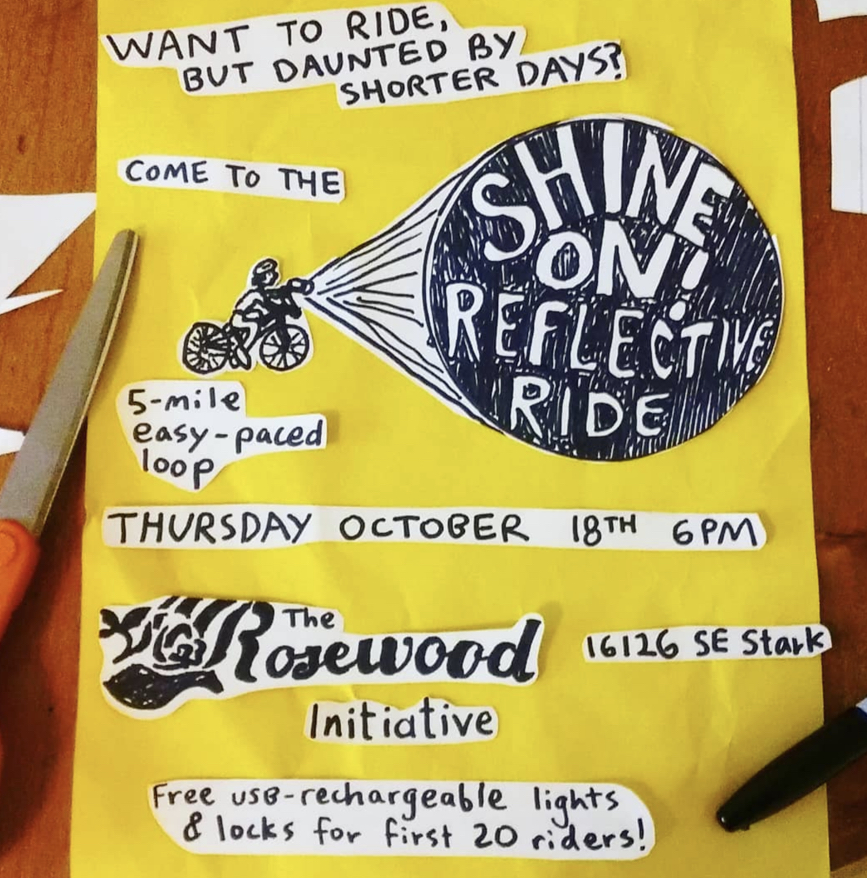 WANT TO RIDE,
BUT DAUNTED BY
SHORTER DAYS?
COME TO THE
SHINE
ON!
REFLECTIVE
RIDE
5-mile
easy-paced
loop
THURSDAY OCTOBER 18TH 6PM
The
Rosewood
Initiative
16126 SE Stark
Free USB-rechargeable lights
& locks for first 20 riders!